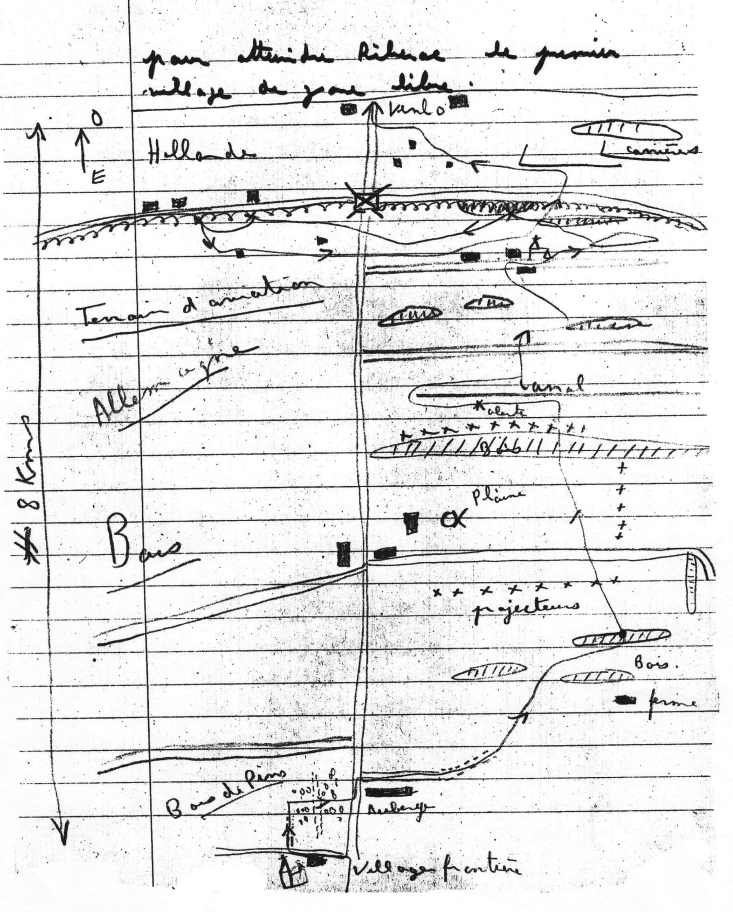 pour atteindre Riberac le premier
village de zone libre.
Venlo
O
E
Hollande
carrières
Terrain d'aviation
Allemagne
canal
alerte
Bois
8 Kms
Plaine
Bois
projecteurs
Bois.
ferme
Bois de Pins
Auberge
Villages frontière